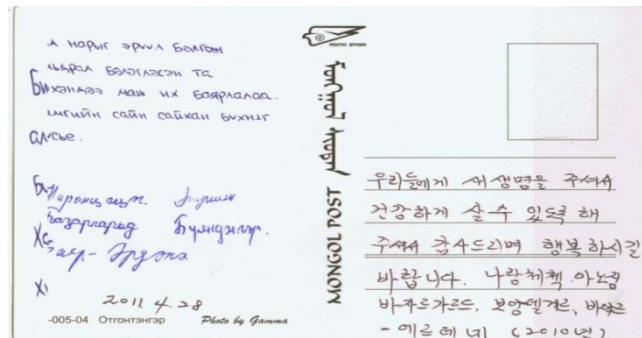 л нарыг эрүүл болгож
ьдрал бэлэглэсэн та
Бүхэндээ маш их баярлалаа.
мгийн сайн сайхан бүхнийг
Б
Наранцэцэг.
Базаргарьд Буяндэлгэр.
Баяр-Эрдэнэ
2011 4.28
-005-04 Отгонтэнгэр Photo by Gamma
MONGOL POST
우리들에게 새 생명을 주셔서
건강하게 살 수 있도록 해
주셔서 감사드리며 행복하시길
바랍니다. 나랑체첵. 아노징
바자르가르드, 보양델게르, 바야르
- 에르데네 (2010년)